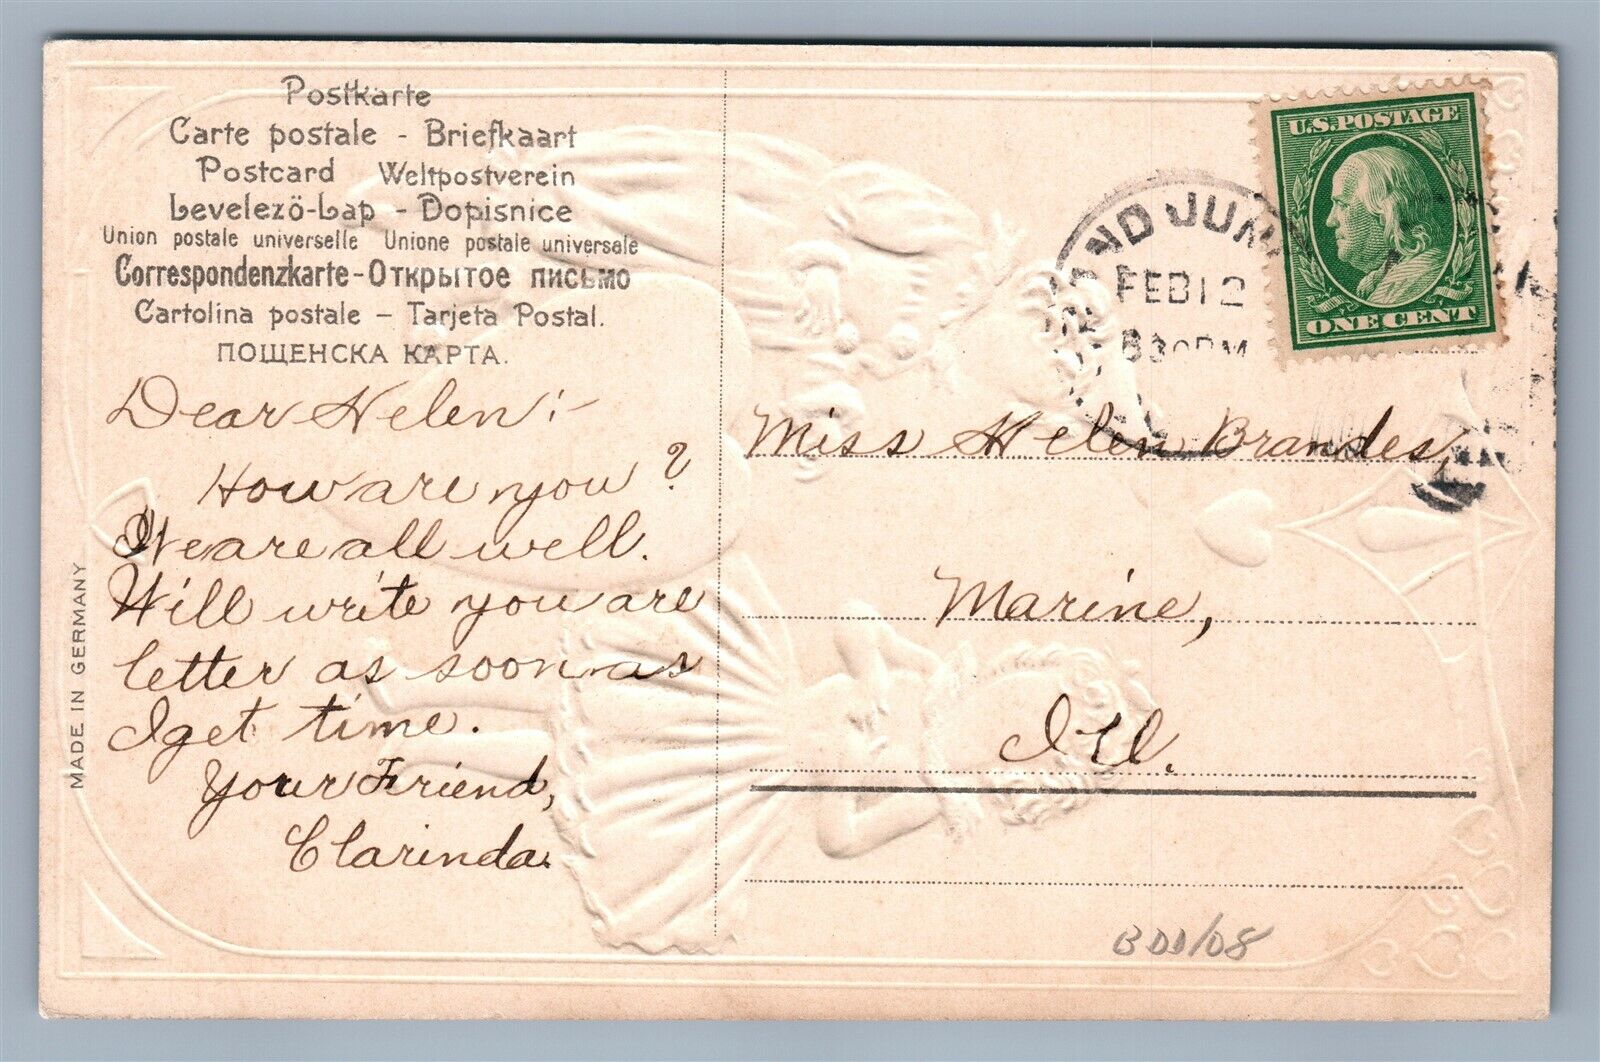 Postkarte
Carte postale - Briefkaart
Postcard Weltpostverein
Levelezö-Lap - Dopisnice
Union postale universelle Unione postale universale
Correspondenzkarte - Открытое письмо
Cartolina postale - Tarjeta Postal.
ПОЩЕНСКА КАРТА.
MADE IN GERMANY
Dear Helen:-
How are you?
We are all well.
Will write you are
letter as soon as
I get time.
Your Friend,
Clarinda.
U.S. POSTAGE
ONE CENT
ND JUN
FEB 12
830 PM
Miss Helen Brandes,
Marine,
Ill.